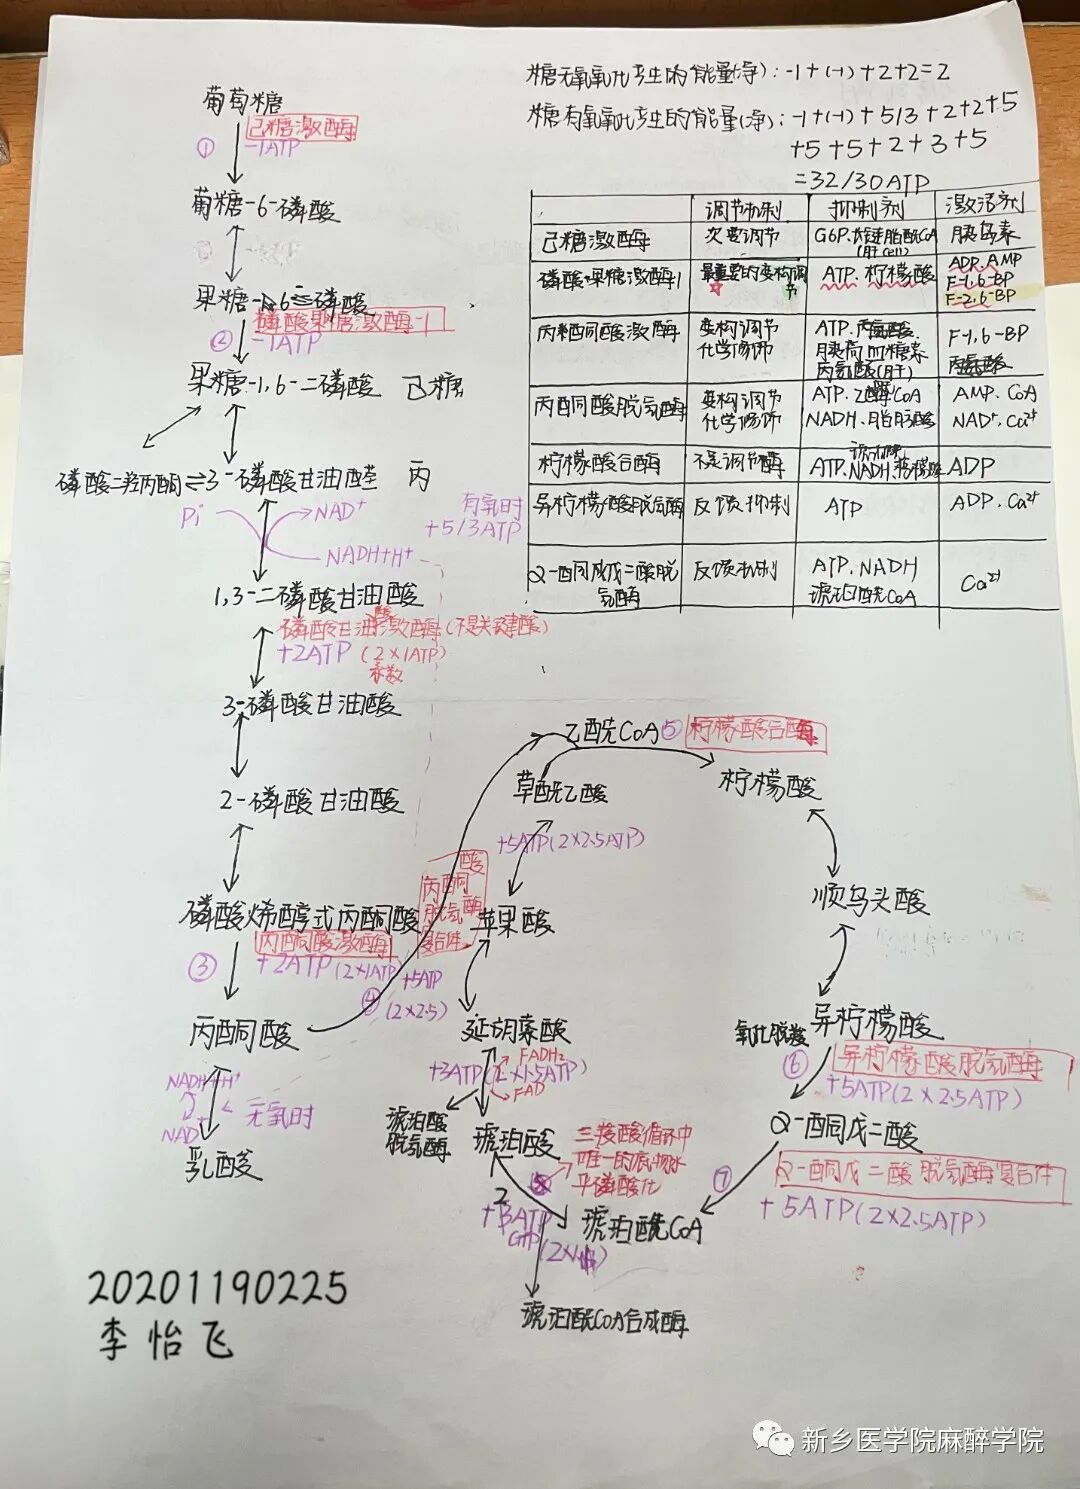 糖无氧氧化产生的能量(净): -1+(-1)+2+2=2
糖有氧氧化产生的能量(净): -1+(-1)+5/3+2+2+5
+5+5+2+3+5
=32/30ATP
调节机制 抑制剂 激活剂
己糖激酶 次要调节 G6P.长链脂酰CoA (肝cell) 胰岛素
磷酸果糖激酶1 最重要的变构调节 ATP.柠檬酸 ADP.AMP F-1,6-BP F-2,6-BP
丙酮酸激酶 变构调节 化学修饰 ATP.丙氨酸. 胰高血糖素 丙氨酸(肝) F-1,6-BP
丙酮酸脱氢酶 变构调节 化学修饰 ATP.乙酰CoA NADH.脂肪酸 AMP.CoA NAD+.Ca2+
柠檬酸合酶 不是调节酶 ATP.NADH. ADP
异柠檬酸脱氢酶 反馈抑制 ATP ADP.Ca2+
α-酮戊二酸脱氢酶 反馈机制 ATP.NADH 琥珀酰CoA Ca2+
葡萄糖
① 己糖激酶
-1ATP
葡糖-6-磷酸
果糖-6-磷酸
磷酸果糖激酶-1
② -1ATP
果糖-1,6-二磷酸 己糖
磷酸二羟丙酮⇌3-磷酸甘油醛 丙
Pi NAD+ 有氧时
+5/3ATP
NADH+H+
1,3-二磷酸甘油酸
磷酸甘油酸激酶(不是关键酶)
+2ATP (2×1ATP)
系数
3-磷酸甘油酸
2-磷酸甘油酸
磷酸烯醇式丙酮酸
丙酮酸激酶
③ +2ATP (2×1ATP)
丙酮酸
NADH+H+
无氧时
NAD+
乳酸
丙酮酸
脱氢酶
复合体
+5ATP
④ (2×2.5)
乙酰CoA ⑤ 柠檬酸合酶
草酰乙酸 柠檬酸
+5ATP(2×2.5ATP)
苹果酸 顺乌头酸
延胡索酸 氧化脱羧 异柠檬酸
FADH2
+3ATP(2×1.5ATP)
FAD
⑥ 异柠檬酸脱氢酶
+5ATP(2×2.5ATP)
琥珀酸
脱氢酶
琥珀酸 α-酮戊二酸
三羧酸循环中
唯一的底物水
平磷酸化
⑦ α-酮戊二酸脱氢酶复合体
+5ATP(2×2.5ATP)
2
+ ATP
GTP
琥珀酰CoA
琥珀酰CoA合成酶
20201190225
李怡飞
新乡医学院麻醉学院